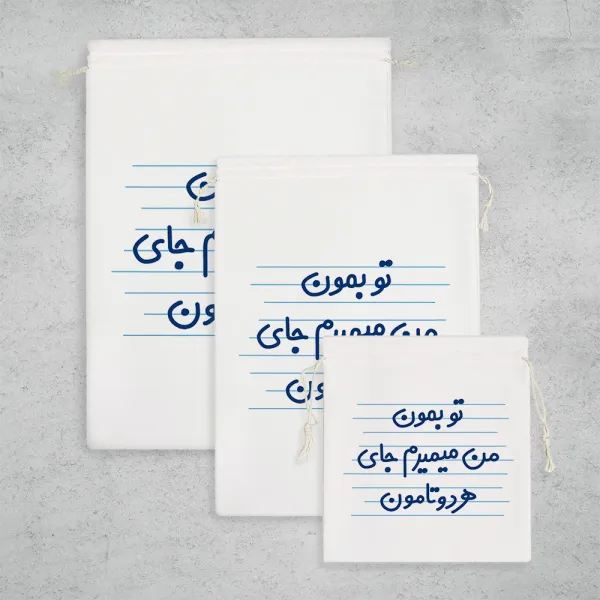 تو بمون
من میمیرم جای
هردوتامون
تو بمون
من میمیرم جای
ون
ن
م جای
ون